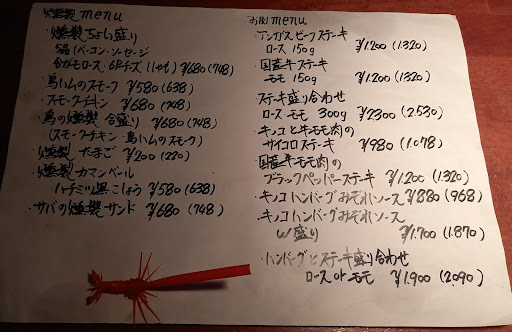 燻製 menu
・燻製ちょい盛り
5品(ベーコン・ソーセージ
合ガモロース・6Pチーズ・ししゃも) ¥680 (748)
・鳥ハムのスモーク ¥580 (638)
・スモークチキン ¥680 (748)
・鳥の燻製 合盛り ¥680 (748)
(スモークチキン・鳥ハムのスモーク)
・燻製 たまご ¥200 (220)
・燻製カマンベール
ハチミツ黒こしょう ¥580 (638)
・サバの燻製サンド ¥680 (748)
お肉 menu
・アンガスビーフステーキ
ロース 150g ¥1,200 (1,320)
・国産牛ステーキ
モモ 150g ¥1,200 (1,320)
ステーキ盛り合わせ
ロース・モモ 300g ¥2,300 (2,530)
・キノコと牛モモ肉の
サイコロステーキ ¥980 (1,078)
・国産牛モモ肉の
ブラックペッパーステーキ ¥1,200 (1,320)
・キノコハンバーグみぞれソース ¥880 (968)
・キノコハンバーグみぞれソース
W盛り ¥1,700 (1,870)
・ハンバーグとステーキ盛り合わせ
ロース or モモ ¥1,900 (2,090)